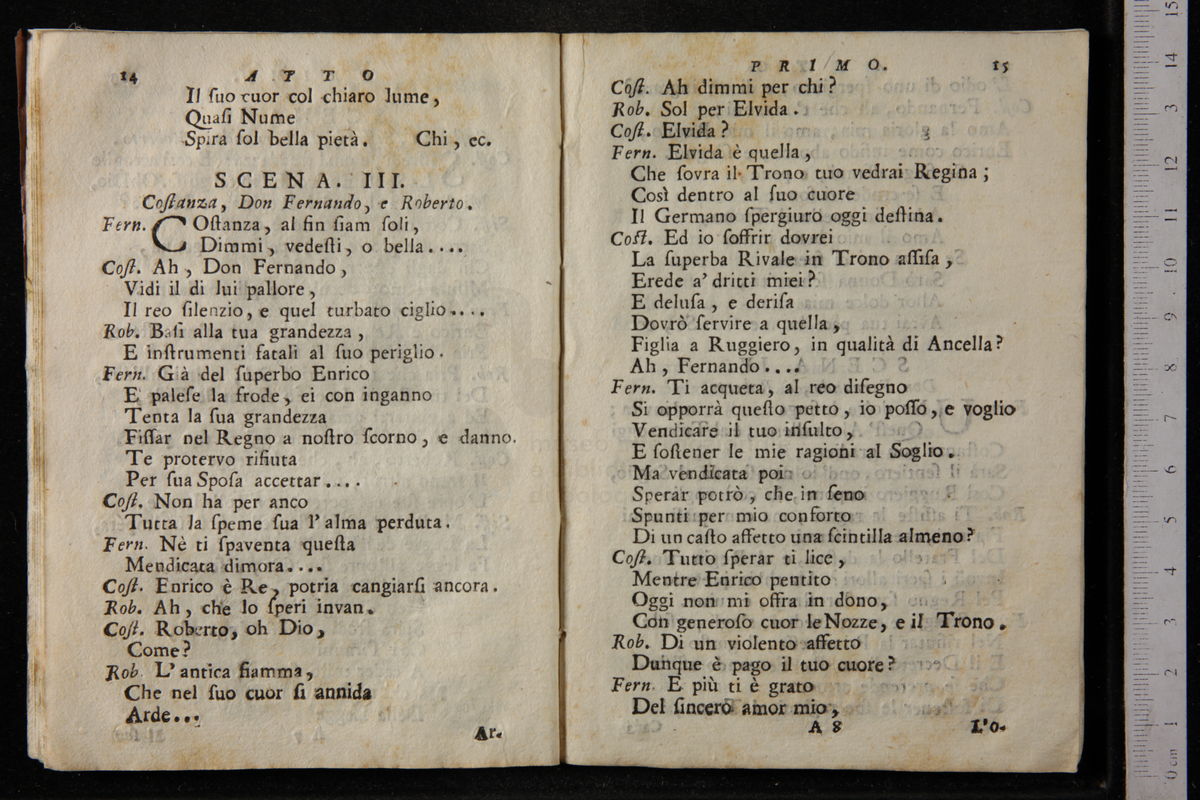 14 ATTO
Il ſuo cuor col chiaro lume,
Quaſi Nume
Spira ſol bella pietà. Chi, ec.
SCENA. III.
Coſtanza, Don Fernando, e Roberto.
Fern. COſtanza, al fin ſiam ſoli,
Dimmi, vedeſti, o bella....
Coſt. Ah, Don Fernando,
Vidi il di lui pallore,
Il reo ſilenzio, e quel turbato ciglio....
Rob. Baſi alla tua grandezza,
E inſtrumenti fatali al ſuo periglio.
Fern. Già del ſuperbo Enrico
E' paleſe la frode, ei con inganno
Tenta la ſua grandezza
Fiſſar nel Regno a noſtro ſcorno, e danno.
Te protervo rifiuta
Per ſua Spoſa accettar....
Coſt. Non ha per anco
Tutta la ſpeme ſua l'alma perduta.
Fern. Nè ti ſpaventa queſta
Mendicata dimora....
Coſt. Enrico è Re, potria cangiarſi ancora.
Rob. Ah, che lo ſperi invan.
Coſt. Roberto, oh Dio,
Come?
Rob. L'antica fiamma,
Che nel ſuo cuor ſi annida
Arde...
Ar-
PRIMO. 15
Coſt. Ah dimmi per chi?
Rob. Sol per Elvida.
Coſt. Elvida?
Fern. Elvida è quella,
Che ſovra il Trono tuo vedrai Regina;
Così dentro al ſuo cuore
Il Germano ſpergiuro oggi deſtina.
Coſt. Ed io ſoffrir dovrei
La ſuperba Rivale in Trono aſſiſa,
Erede a' dritti miei?
E deluſa, e deriſa
Dovrò ſervire a quella,
Figlia a Ruggiero, in qualità di Ancella?
Ah, Fernando....
Fern. Ti acqueta, al reo diſegno
Si opporrà queſto petto, io poſſo, e voglio
Vendicare il tuo inſulto,
E ſoſtener le mie ragioni al Soglio.
Ma vendicata poi
Sperar potrò, che in ſeno
Spunti per mio conforto
Di un caſto affetto una ſcintilla almeno?
Coſt. Tutto ſperar ti lice,
Mentre Enrico pentito
Oggi non mi offra in dono,
Con generoſo cuor le Nozze, e il Trono.
Rob. Di un violento affetto
Dunque è pago il tuo cuore?
Fern. E più ti è grato
Del ſincero amor mio,
A 8 L'o-
0 cm 1 2 3 4 5 6 7 8 9 10 11 12 13 14 15